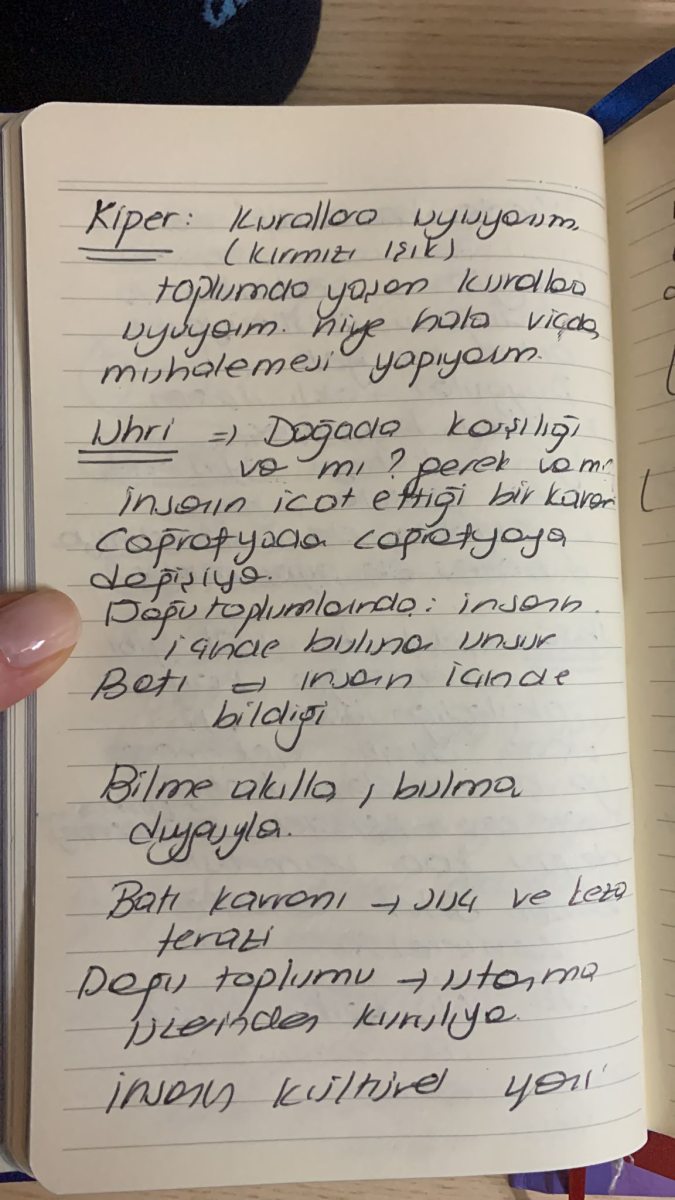 Kiper: Kurallara uyuyorum
(kırmızı ışık)
toplumda yaşan kurallara
uyuyorum. niye hala vicda
muhakemesi yapıyorum.
Uhri => Doğada karşılığı
va mı? gerek va mı
insanın icat ettiği bir kavram
Coğrafyada coğrafyaya
değişiyo.
Doğu toplumlarında: insanın
içinde buluna unsur
Batı => insan içinde
bildiği
Bilme akılla, bulma
duyguyla.
Batı kavramı → suç ve ceza
terazi
Doğu toplumu → utanma
üzerinden kuruluyo.
insanın kültürel yanı